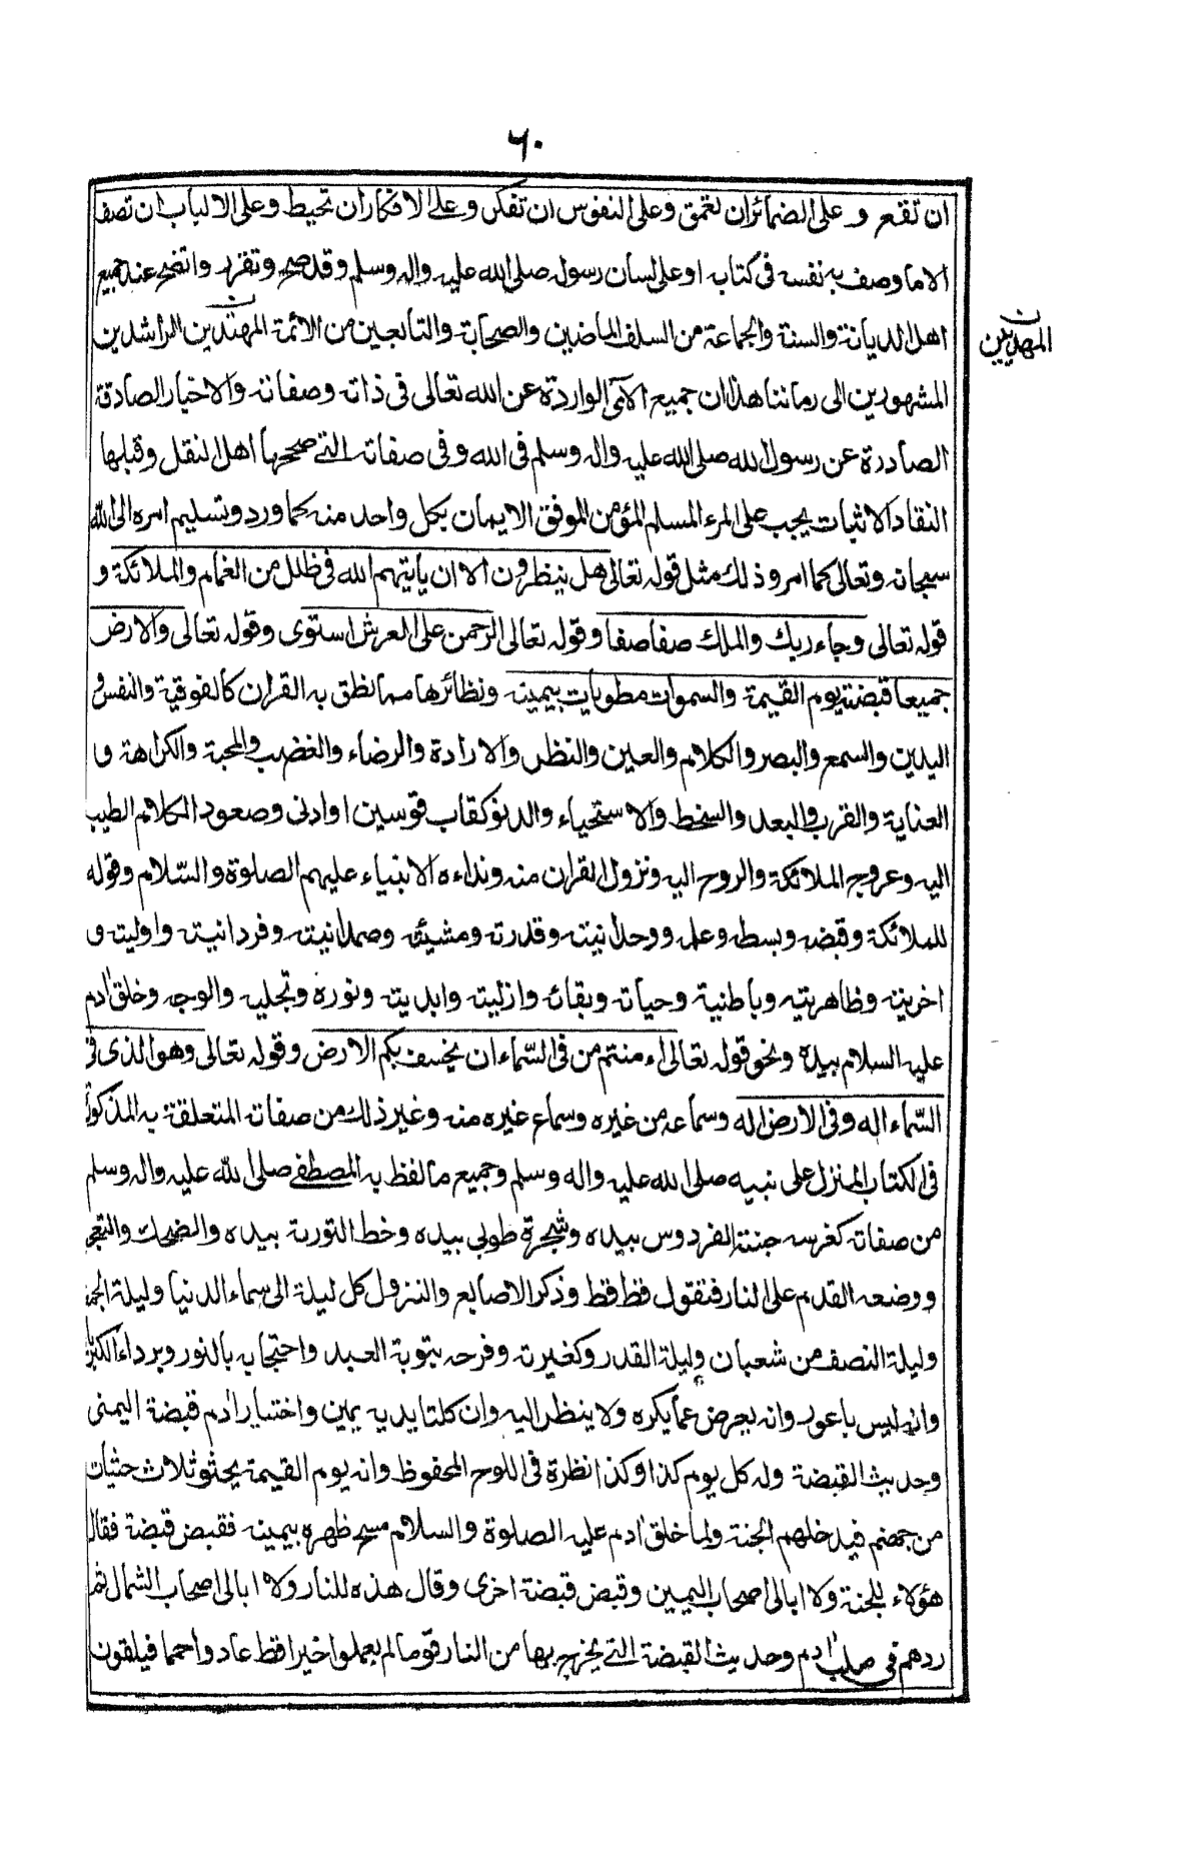 ٦٠
ان تقع و على الضمائر ان تعمق وعلى النفوس ان تفكر وعلى الافكار ان تحيط وعلى الالباب ان تصف
الا ما وصف به نفسه فى كتابه او على لسان رسوله صلى الله عليه واله وسلم وقد صح وتقرر واتضح عند جميع
اهل الديانة والسنة والجماعة من السلف الماضين والصحابة والتابعين من الائمة المهتدين الراشدين
المهديين
المشهورين الى زماننا هذا ان جميع الآى الواردة عن الله تعالى فى ذاته وصفاته والاخبار الصادقة
الصادرة عن رسول الله صلى الله عليه واله وسلم فى الله وفى صفاته التے صححها اهل النقل وقبلها
النقاد الاثبات يجب على المرء المسلم المؤمن الموفق الايمان بكل واحد منه كما ورد وتسليم امره الى الله
سبحانه وتعالى كما امر وذلك مثل قوله تعالى هل ينظرون الا ان ياتيهم الله فى ظلل من الغمام والملائكة و
قوله تعالى وجاء ربك والملك صفا صفا وقوله تعالى الرحمن على العرش استوى وقوله تعالى والارض
جميعا قبضته يوم القيمة والسموات مطويات بيمينه ونظائرها مما نطق به القران كالفوقية والنفس و
اليدين والسمع والبصر والكلام والعين والنظر والارادة والرضاء والغضب والمحبة والكراهة و
العناية والقرب والبعد والسخط والاستحياء والدنو كقاب قوسين او ادنى وصعود الكلام الطيب
اليه وعروج الملائكة والروح اليه ونزول القران منه ونداءه الانبياء عليهم الصلوة والسّلام وقوله
للملائكة وقبضه وبسطه وعلمه ووحدانيته وقدرته ومشيئته وصمدانيته وفردانيته واوليته و
اخريته وظاهريته وباطنية وحياته وبقائه وازليته وابديته ونوره وتجليه والوجه وخلق ادم
عليه السلام بيده ونحو قوله تعالى اء منتم من فى السّماء ان يخسف بكم الارض وقوله تعالى وهو الذى فى
السّماء اله وفى الارض اله وسماعه من غيره وسماع غيره منه وغير ذلك من صفاته المتعلقة به المذكورة
فى الكتاب المنزل على نبيه صلى الله عليه واله وسلم وجميع ما لفظ به المصطفے صلى الله عليه واله وسلم
من صفاته كغرسه جنة الفردوس بيده وشجرة طوبى بيده وخط التورىة بيده والضحك والتعجب
ووضعه القدم على النار فتقول قط قط وذكر الاصابع والنزول كل ليلة الى سماء الدنيا وليلة الجمعة
وليلة النصف من شعبان وليلة القدر وكغيرته وفرحه بتوبة العبد واحتجابه بالنور وبرداء الكبرياء
وانه ليس باعور وانه يعرض عما يكره ولا ينظر اليه وان كلتا يديه يمين واختيار ادم قبضة اليمنى
وحديث القبضة وله كل يوم كذا وكذا نظرة فى اللوح المحفوظ وانه يوم القيمة يحثو ثلاث حثيات
من جهنم فيدخلهم الجنة ولما خلق ادم عليه الصلوة والسلام مسح ظهره بيمينه فقبض قبضة فقال
هؤلاء للجنة ولا ابالى اصحاب اليمين وقبض قبضة اخرى وقال هذه للنار ولا ابالى اصحاب الشمال ثم
ردهم فى صلب ادم وحديث القبضة التے يخرج بها من النار قوما لم يعملوا خيرا قط عادوا حمما فيلقون